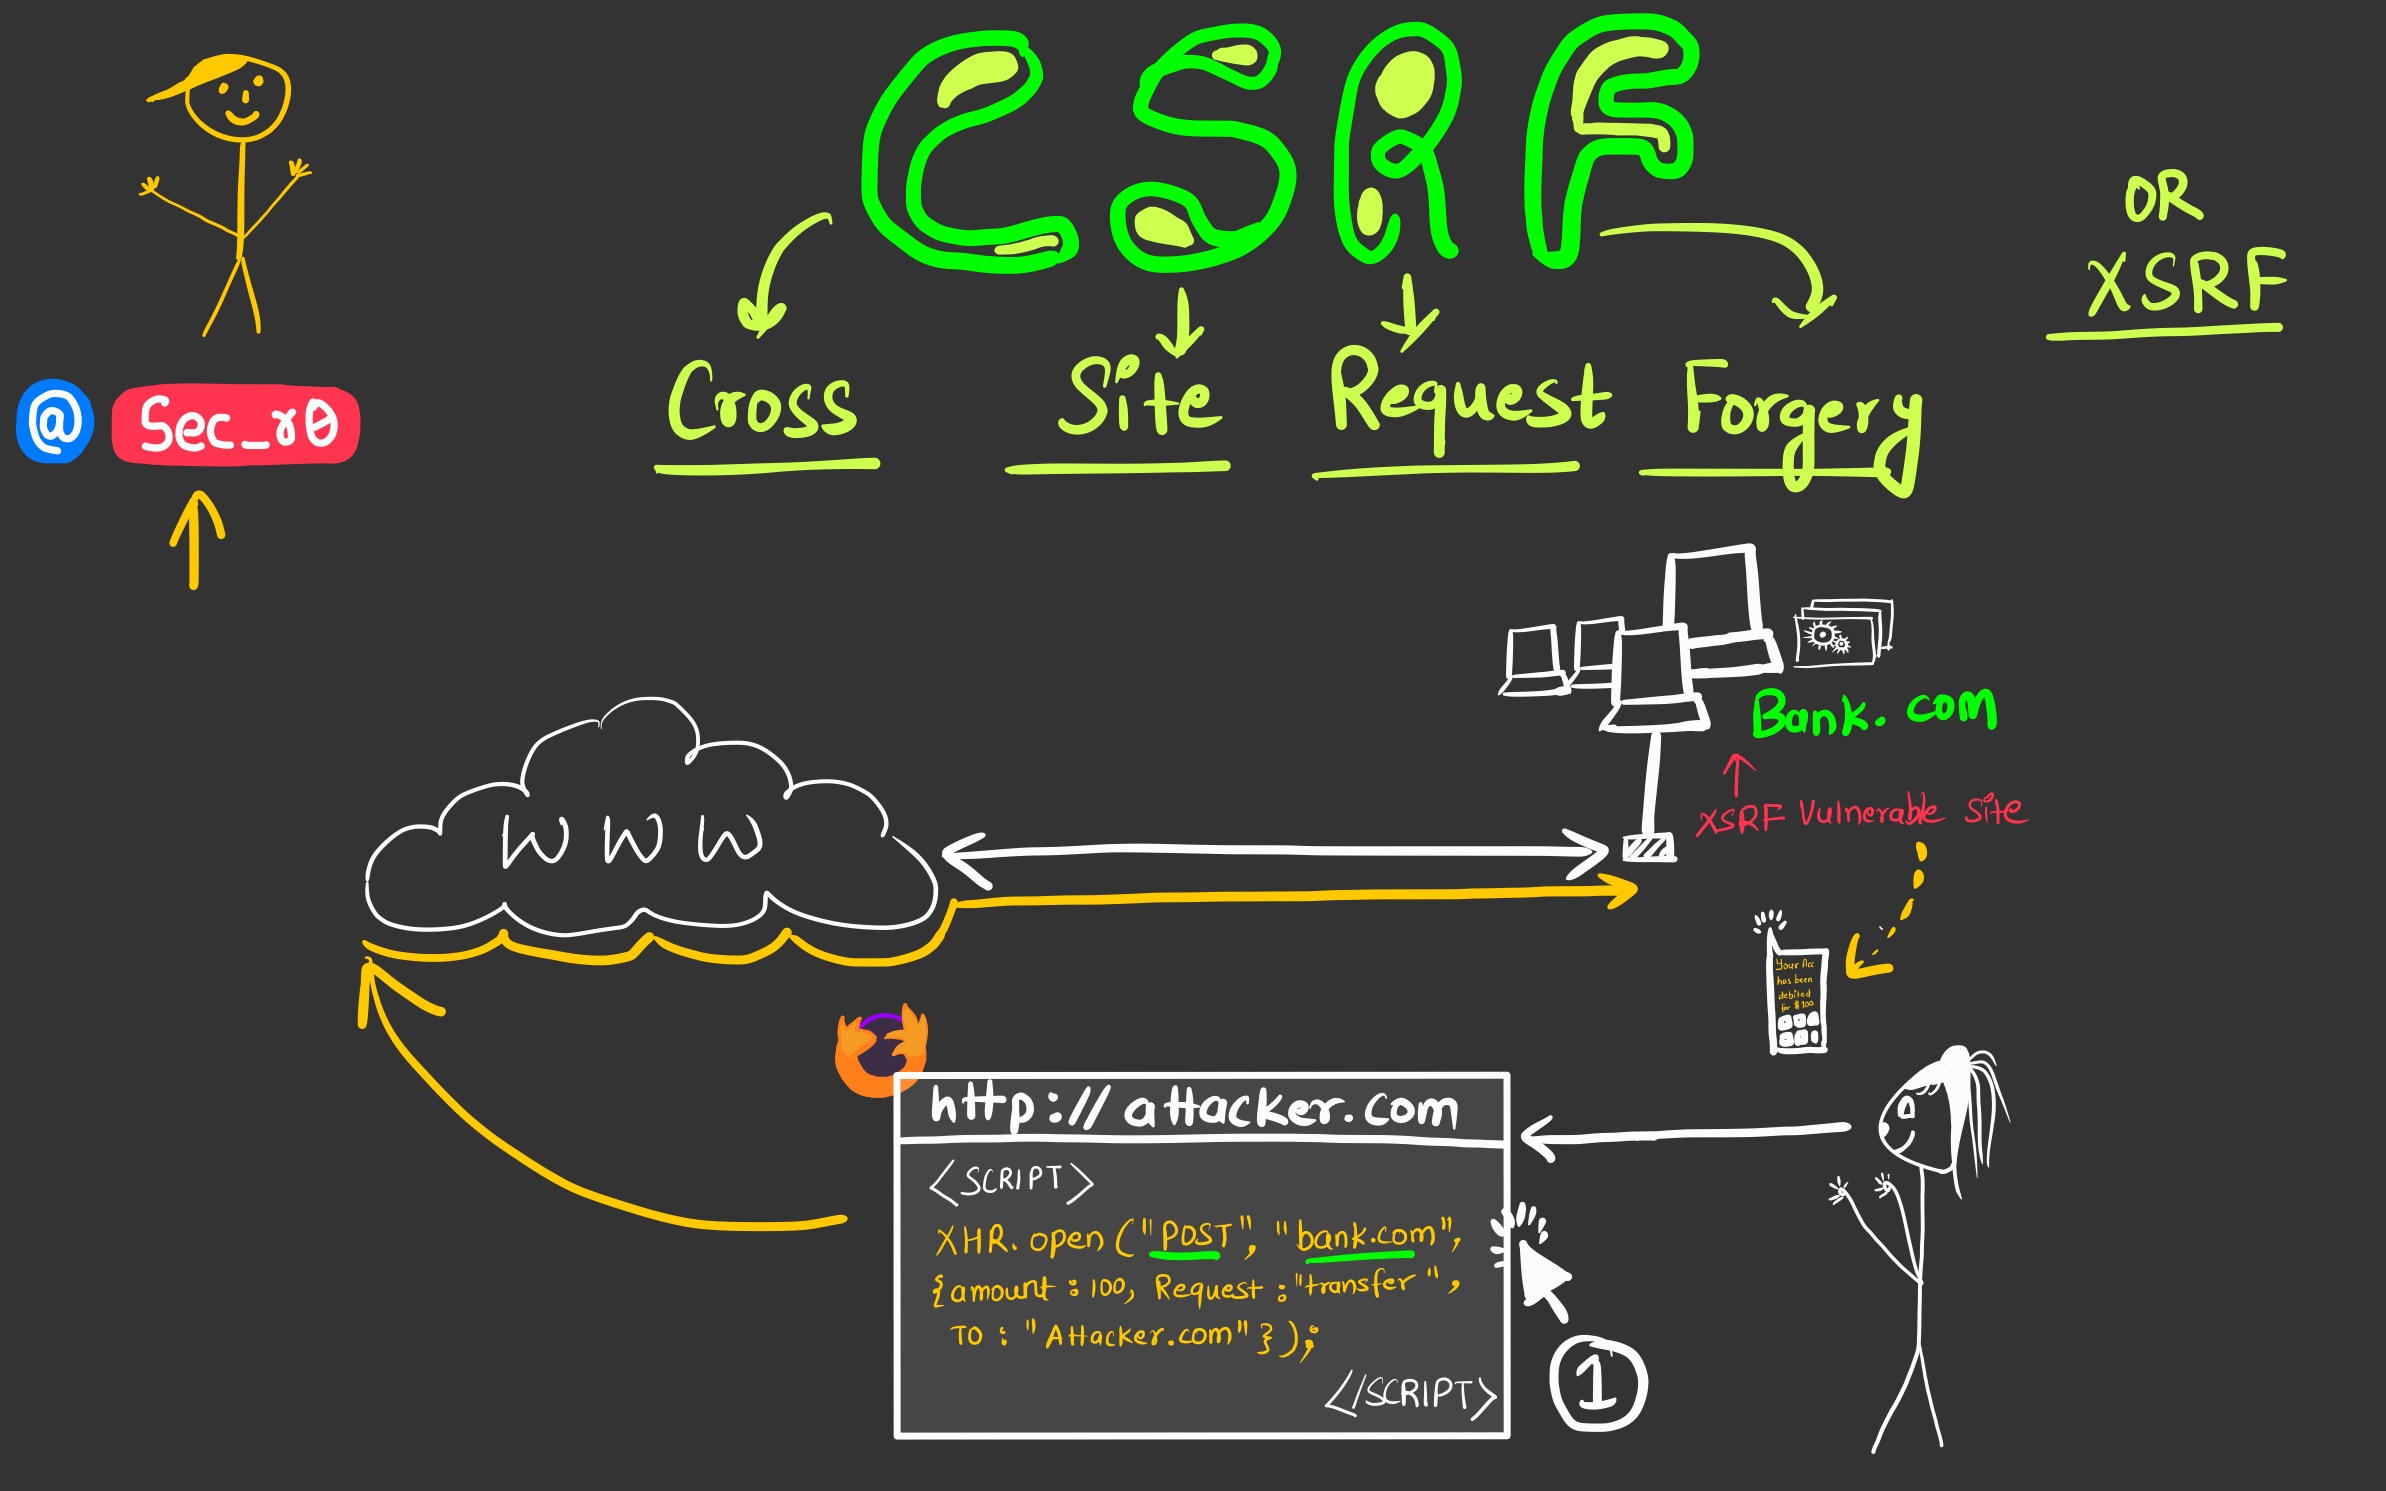 CSRF
OR
XSRF
Cross Site Request Forgery
@ Sec_r0
Bank.com
XSRF Vulnerable Site
WWW
Your Acc
has been
debited
for $100
http://attacker.com
<SCRIPT>
XHR.open ("POST", "bank.com",
{amount : 100, Request : "transfer",
TO : "Attacker.com"});
</SCRIPT>
1